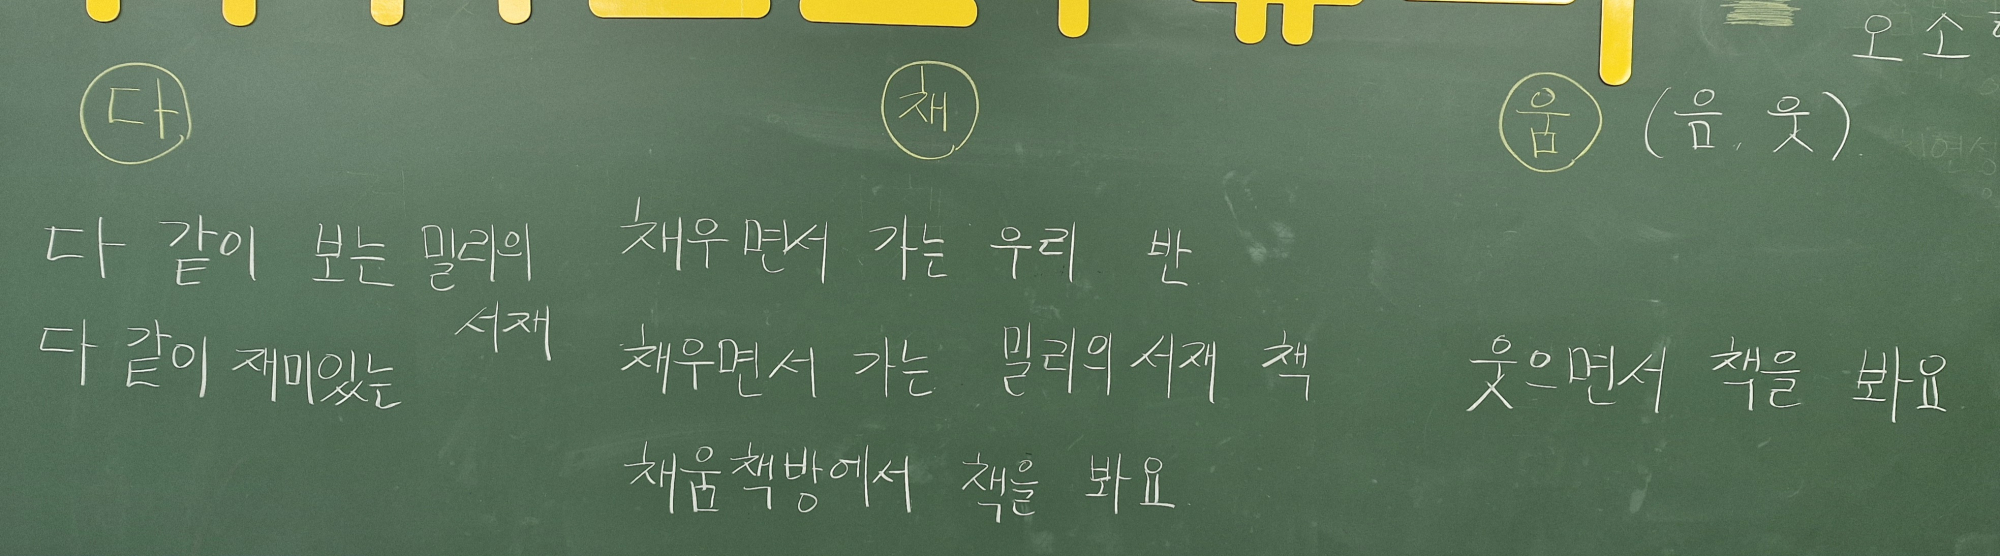 오 소
다 채 움 (음, 웃)
다 같이 보는 밀리의 서재
다 같이 재미있는
채우면서 가는 우리 반
채우면서 가는 밀리의 서재 책
채움책방에서 책을 봐요
웃으면서 책을 봐요